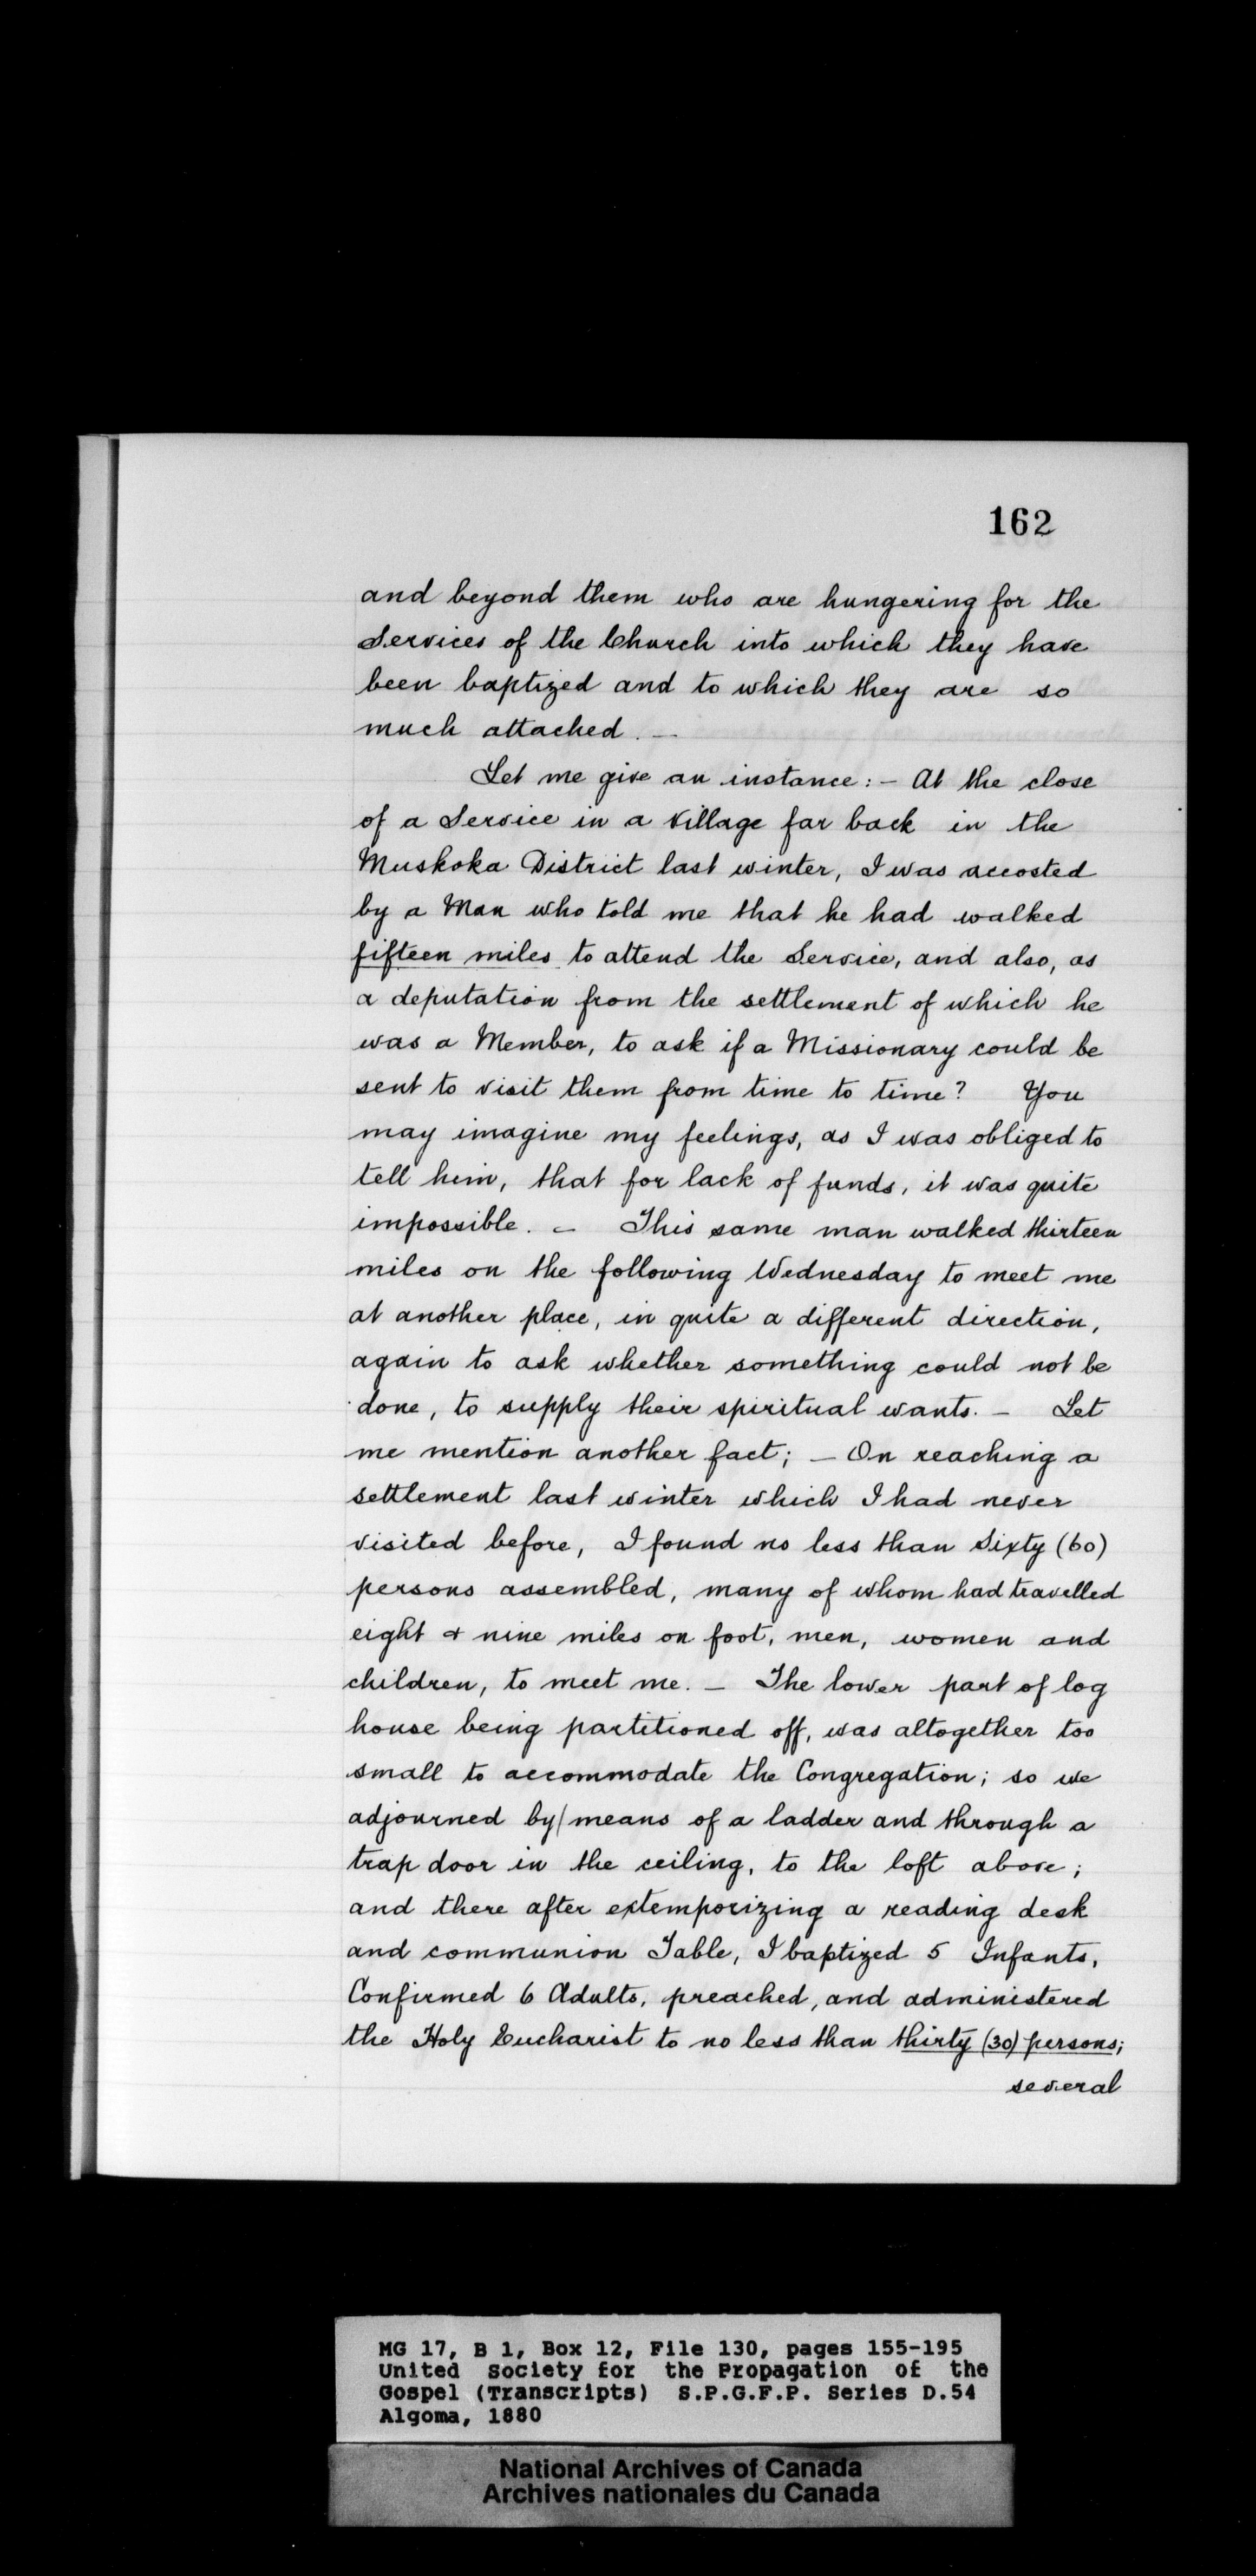 162
and beyond them who are hungering for the
Services of the Church into which they have
been baptized and to which they are so
much attached. —
Let me give an instance: — At the close
of a Service in a Village far back in the
Muskoka District last winter, I was accosted
by a Man who told me that he had walked
fifteen miles to attend the Service, and also, as
a deputation from the settlement of which he
was a Member, to ask if a Missionary could be
sent to visit them from time to time? You
may imagine my feelings, as I was obliged to
tell him, that for lack of funds, it was quite
impossible. — This same man walked thirteen
miles on the following Wednesday to meet me
at another place, in quite a different direction,
again to ask whether something could not be
done, to supply their spiritual wants. — Let
me mention another fact; — On reaching a
settlement last winter which I had never
visited before, I found no less than Sixty (60)
persons assembled, many of whom had travelled
eight & nine miles on foot, men, women and
children, to meet me. — The lower part of log
house being partitioned off, was altogether too
small to accommodate the Congregation; so we
adjourned by/means of a ladder and through a
trap door in the ceiling, to the loft above;
and there after extemporizing a reading desk
and communion Table, I baptized 5 Infants,
Confirmed 6 Adults, preached, and administered
the Holy Eucharist to no less than thirty (30) persons;
several
MG 17, B 1, Box 12, File 130, pages 155-195
United Society for the Propagation of the
Gospel (Transcripts) S.P.G.F.P. Series D.54
Algoma, 1880
National Archives of Canada
Archives nationales du Canada